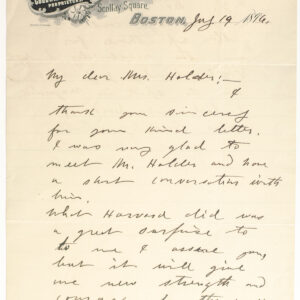 PROPRIETORS
Scollay Square,
BOSTON, July 19 1896.
My dear Mrs. Holder:-
I
thank you sincerely
for your kind letter.
I was very glad to
meet Mr. Holder and have
a short conversation with
him.
What Harvard did was
a great surprise to
to me I assure you,
but it will give
me new strength and
courage